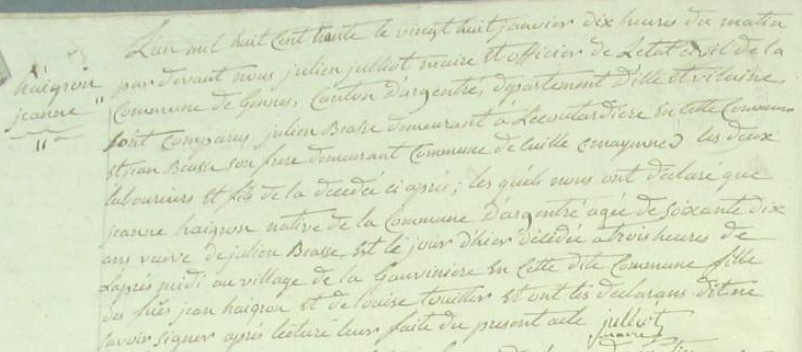 L'an mil huit cent trente le vingt huit janvier dix heures du matin
haigron
jeanne
par devant nous julien julliot maire et officier de Letat civil de la
Commune de Gennes, Canton D'argentré, département D'ille et vilaine,
Sont comparus julien Beasse demeurant à en Cette Commune
et jean Beasse son frere demeurant Commune de Cuillé (mayenne) les deux
laboureurs et fils de la décédée ci après; les quels nous ont déclaré que
jeanne haigron native de la Commune D'argentré agée de soixante dix
ans veuve de julien Beasse, est le jour D'hier décédée à trois heures de
L'après midi au village de la Gauvinière en Cette dite Commune fille
des fûes jean haigron et de louise et ont les declarans dit ne
savoir signer après lecture leur faite du present acte julliot
maire